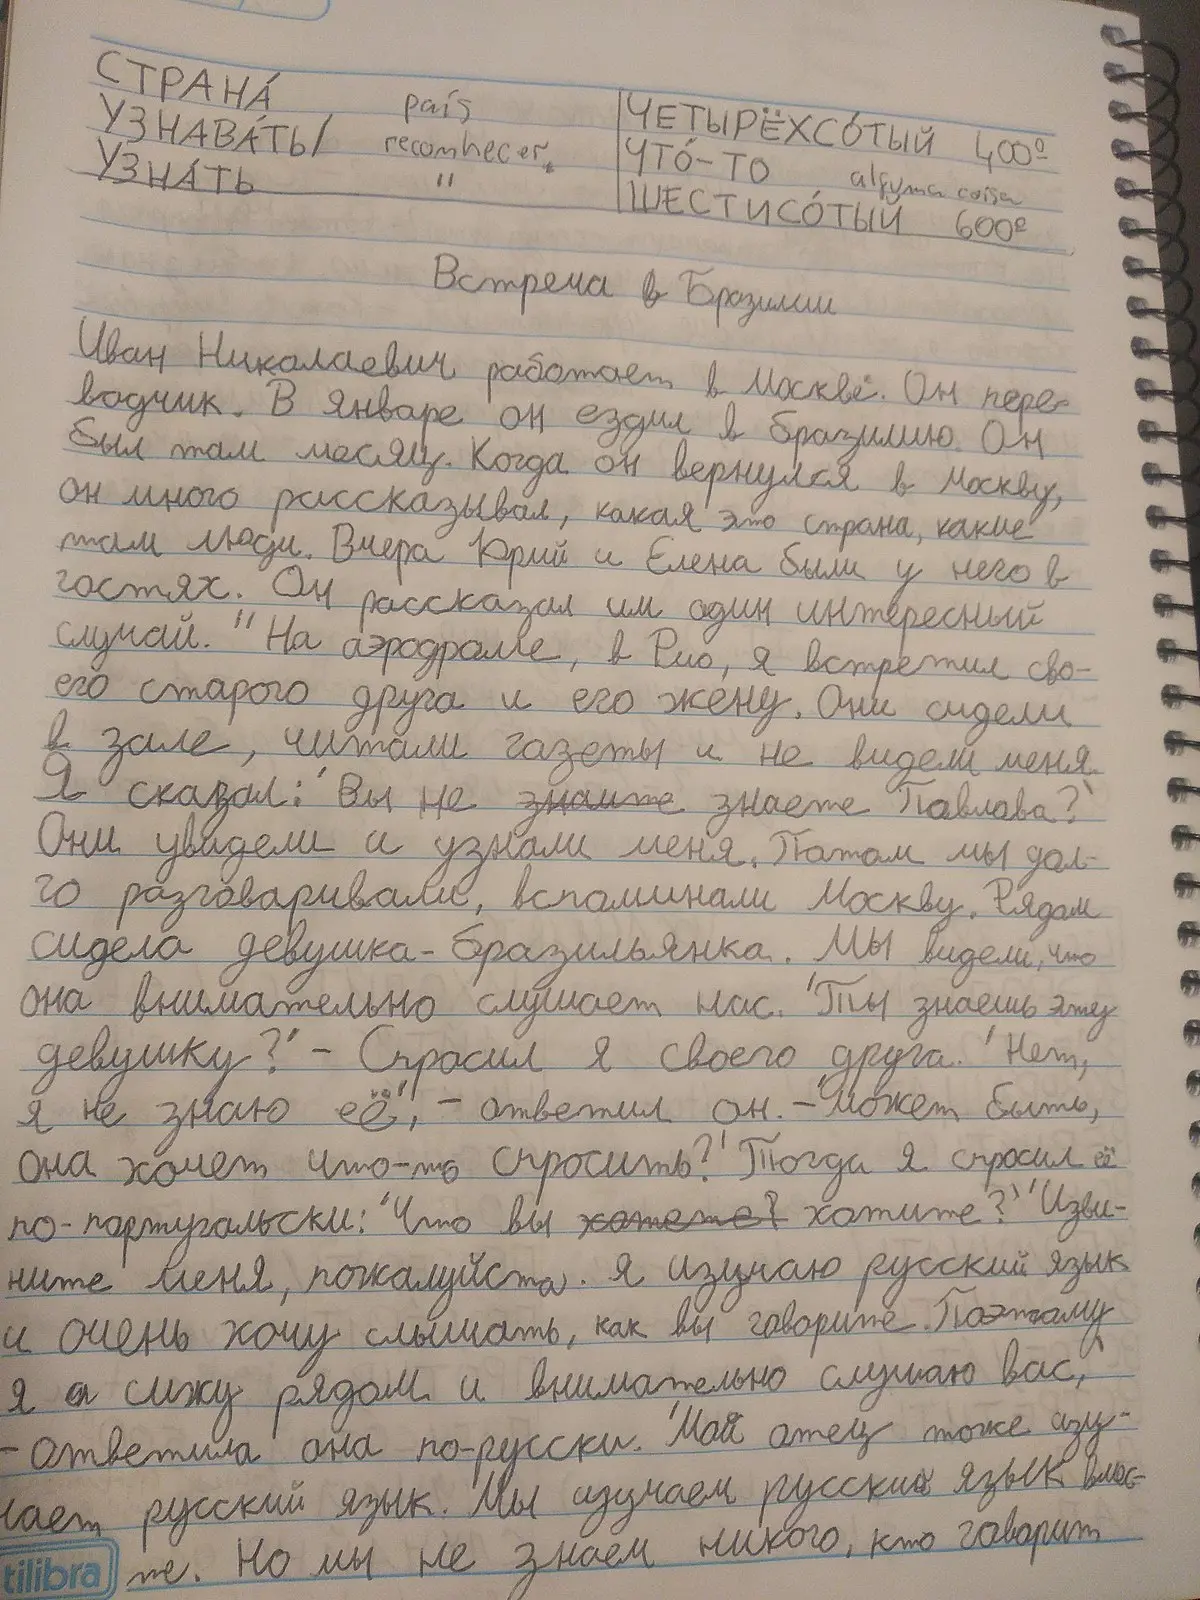 СТРАНА́ país
УЗНАВА́ТЬ/ reconhecer
УЗНА́ТЬ "
ЧЕТЫРЁХСО́ТЫЙ 400º
ЧТО́-ТО alguma coisa
ШЕСТИСО́ТЫЙ 600º
Встреча в Бразилии
Иван Николаевич работает в Москве. Он пере-
водчик. В январе он ездил в Бразилию. Он
был там месяц. Когда он вернулся в Москву,
он много рассказывал, какая это страна, какие
там люди. Вчера Юрий и Елена были у него в
гостях. Он рассказал им один интересный
случай. "На аэродроме, в Рио, я встретил сво-
его старого друга и его жену. Они сидели
в зале, читали газеты и не видели меня.
Я сказал: 'Вы не знаите знаете Павлова?'
Они увидели и узнали меня. Потом мы дол-
го разговаривали, вспоминали Москву. Рядом
сидела девушка-бразильянка. Мы видели, что
она внимательно слушает нас. 'Ты знаешь эту
девушку?' – Спросил я своего друга. 'Нет,
я не знаю её', – ответил он. – 'Может быть,
она хочет что-то спросить?' Тогда я спросил её
по-португальски: 'Что вы хотете? хотите?' 'Изви-
ните меня, пожалуйста. Я изучаю русский язык
и очень хочу слышать, как вы говорите. Поэтому
я сижу рядом и внимательно слушаю вас,'
– ответила она по-русски. 'Мой отец тоже изу-
чает русский язык. Мы изучаем русский язык вмес-
те. Но мы не знаем никого, кто говорит
tilibra